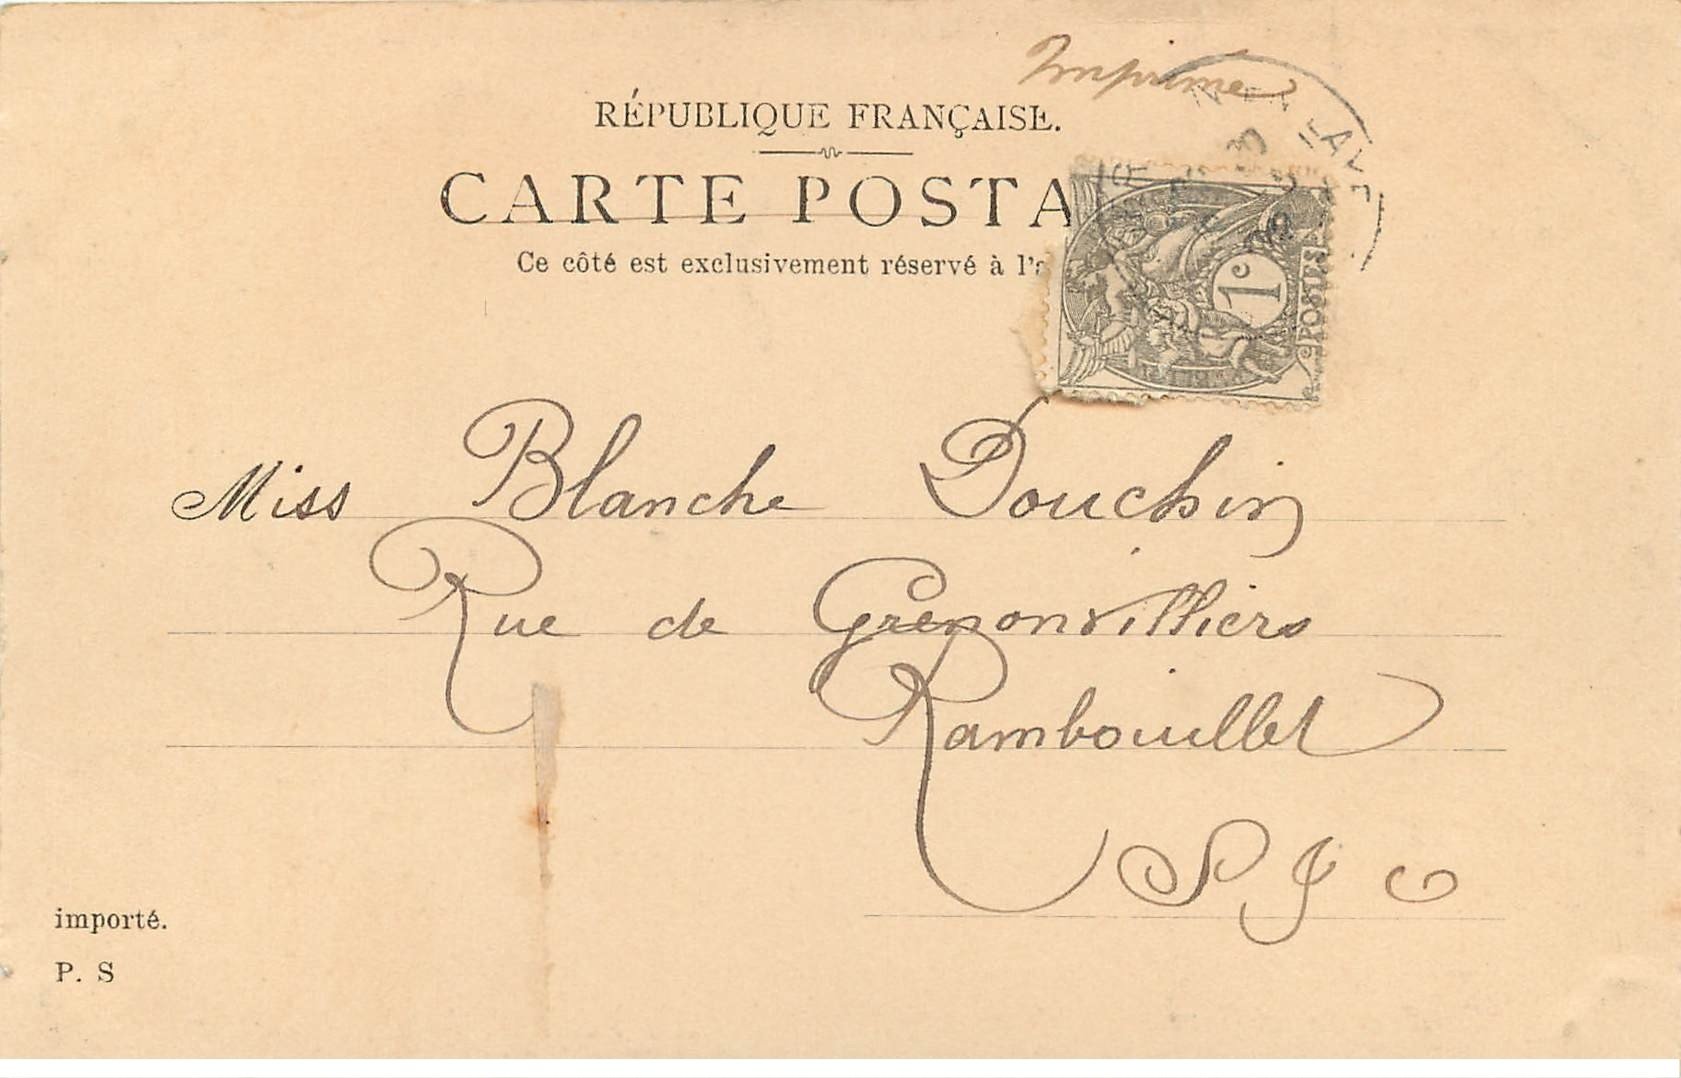 Imprimé
RÉPUBLIQUE FRANÇAISE.
CARTE POSTA
Ce côté est exclusivement réservé à l'a
1c
POSTES
Miss Blanche Douchin
Rue de Grenonvilliers
Rambouillet
S
importé.
P. S